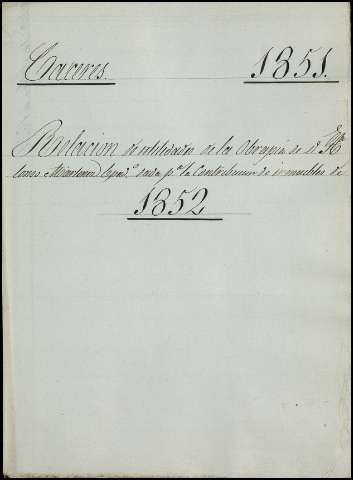 Caceres. 1851.
Relacion de utilidades de la Obrapia de Dn
para pr la Contribucion de inmuebles de
1852